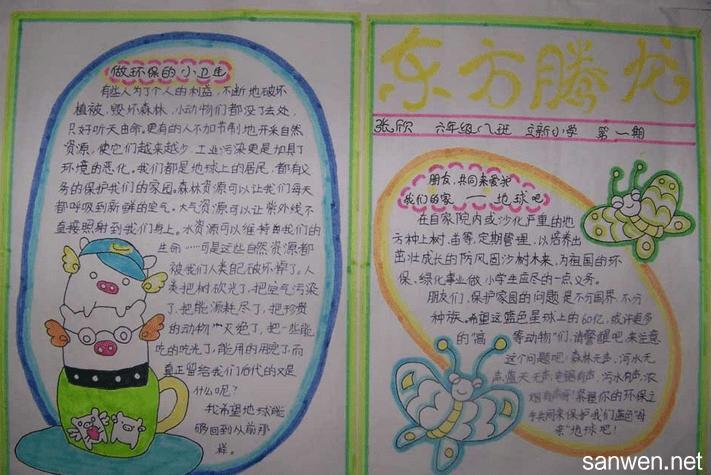 做环保的小卫生
有些人为了个人的利益,不断地破坏
植被,毁坏森林,小动物们都没了去处,
只好听天由命,更有的人不加节制地开来自然
资源,使它们越来越少,工业污染更是加具了
环境的恶化。我们都是地球上的居民,都有义
务的保护我们的家园。森林资源可以让我们每天
都呼吸到新鲜的空气。大气资源可以让紫外线不
直接照射到我们身上。水资源可以维持每我们的
生命……可是这些自然资源都
被我们人类自己破坏掉了。人
类把树砍光了,把空气污染
了,把能源耗尽了,把珍贵
的动物灭绝了,把一些能
吃的吃光了,能用的用完了,而
真正留给我们后代的又是
什么呢?
我希望地球能
够回到从前那
样。
东方腾龙
张欣 六年级八班 立新小学 第一期
朋友,共同来爱我
我们的家——地球吧
在自家院内或沙化严重的地
方种上树、苗等,定期管理,以培养出
茁壮成长的防风固沙树木来,为祖国的环
保、绿化事业做小学生应尽的一点义务。
朋友们,保护家园的问题是不分国界,不分
种族。希望这蓝色星球上的60亿,或许更多
的“高等动物”们,请警醒吧,来注意
这个问题吧!森林无声,河水无
声,蓝天无声,电锯有声,污水有声,浓
烟有声
你的环保之
手共同来保护我们蓝色“母
亲”地球吧!
sanwen.net